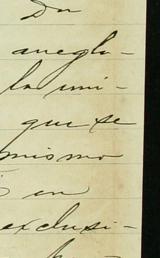 Da
arregla-
la uni-
que se
mismo
en
exclusi-